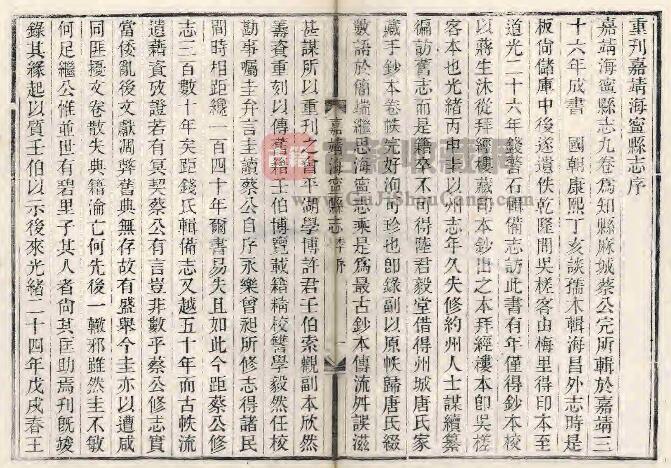 重刊嘉靖海寧縣志序
嘉靖海寧縣志九卷爲知縣麻城蔡公完所輯於嘉靖三
十六年成書 國朝康熙丁亥談孺木輯海昌外志時是
板尙儲庫中後遂遺佚乾隆間吳槎客由梅里得印本至
道光二十六年錢警石輯備志訪此書有年僅得鈔本校
以蔣生沐從拜經樓藏印本鈔出之本拜經樓本卽吳槎
客本也光緒丙申圭以州志年久失修約州人士謀續纂
徧訪舊志而是籍卒不可得陸君毅堂借得州城唐氏家
藏手鈔本卷帙完好洵可珍也卽錄副以原帙歸唐氏綴
數語於簡端繼思海寧志乘是爲最古鈔本傳流舛誤滋
嘉靖海寧縣志 序 一
甚謀所以重刊之會平湖學博許君壬伯索觀副本欣然
籌資重刻以傳舊籍壬伯博覽載籍精校讐學毅然任校
勘事囑圭弁言圭讀蔡公自序永樂曾昶所修志得諸民
間時相距纔一百四十年爾書易失且如此今距蔡公修
志三百數十年矣距錢氏輯備志又越五十年而古帙流
遺藉資攷證若有冥契蔡公有言豈非數乎蔡公修志實
當倭亂後文獻凋弊舊典無存故有盛舉今圭亦以遭咸
同匪擾文卷散失典籍淪亡何先後一轍邪雖然圭不敏
何足繼公惟並世有碧里子其人者尙其匡助焉刊旣竣
錄其緣起以質壬伯以示後來光緒二十四年戊戌春王